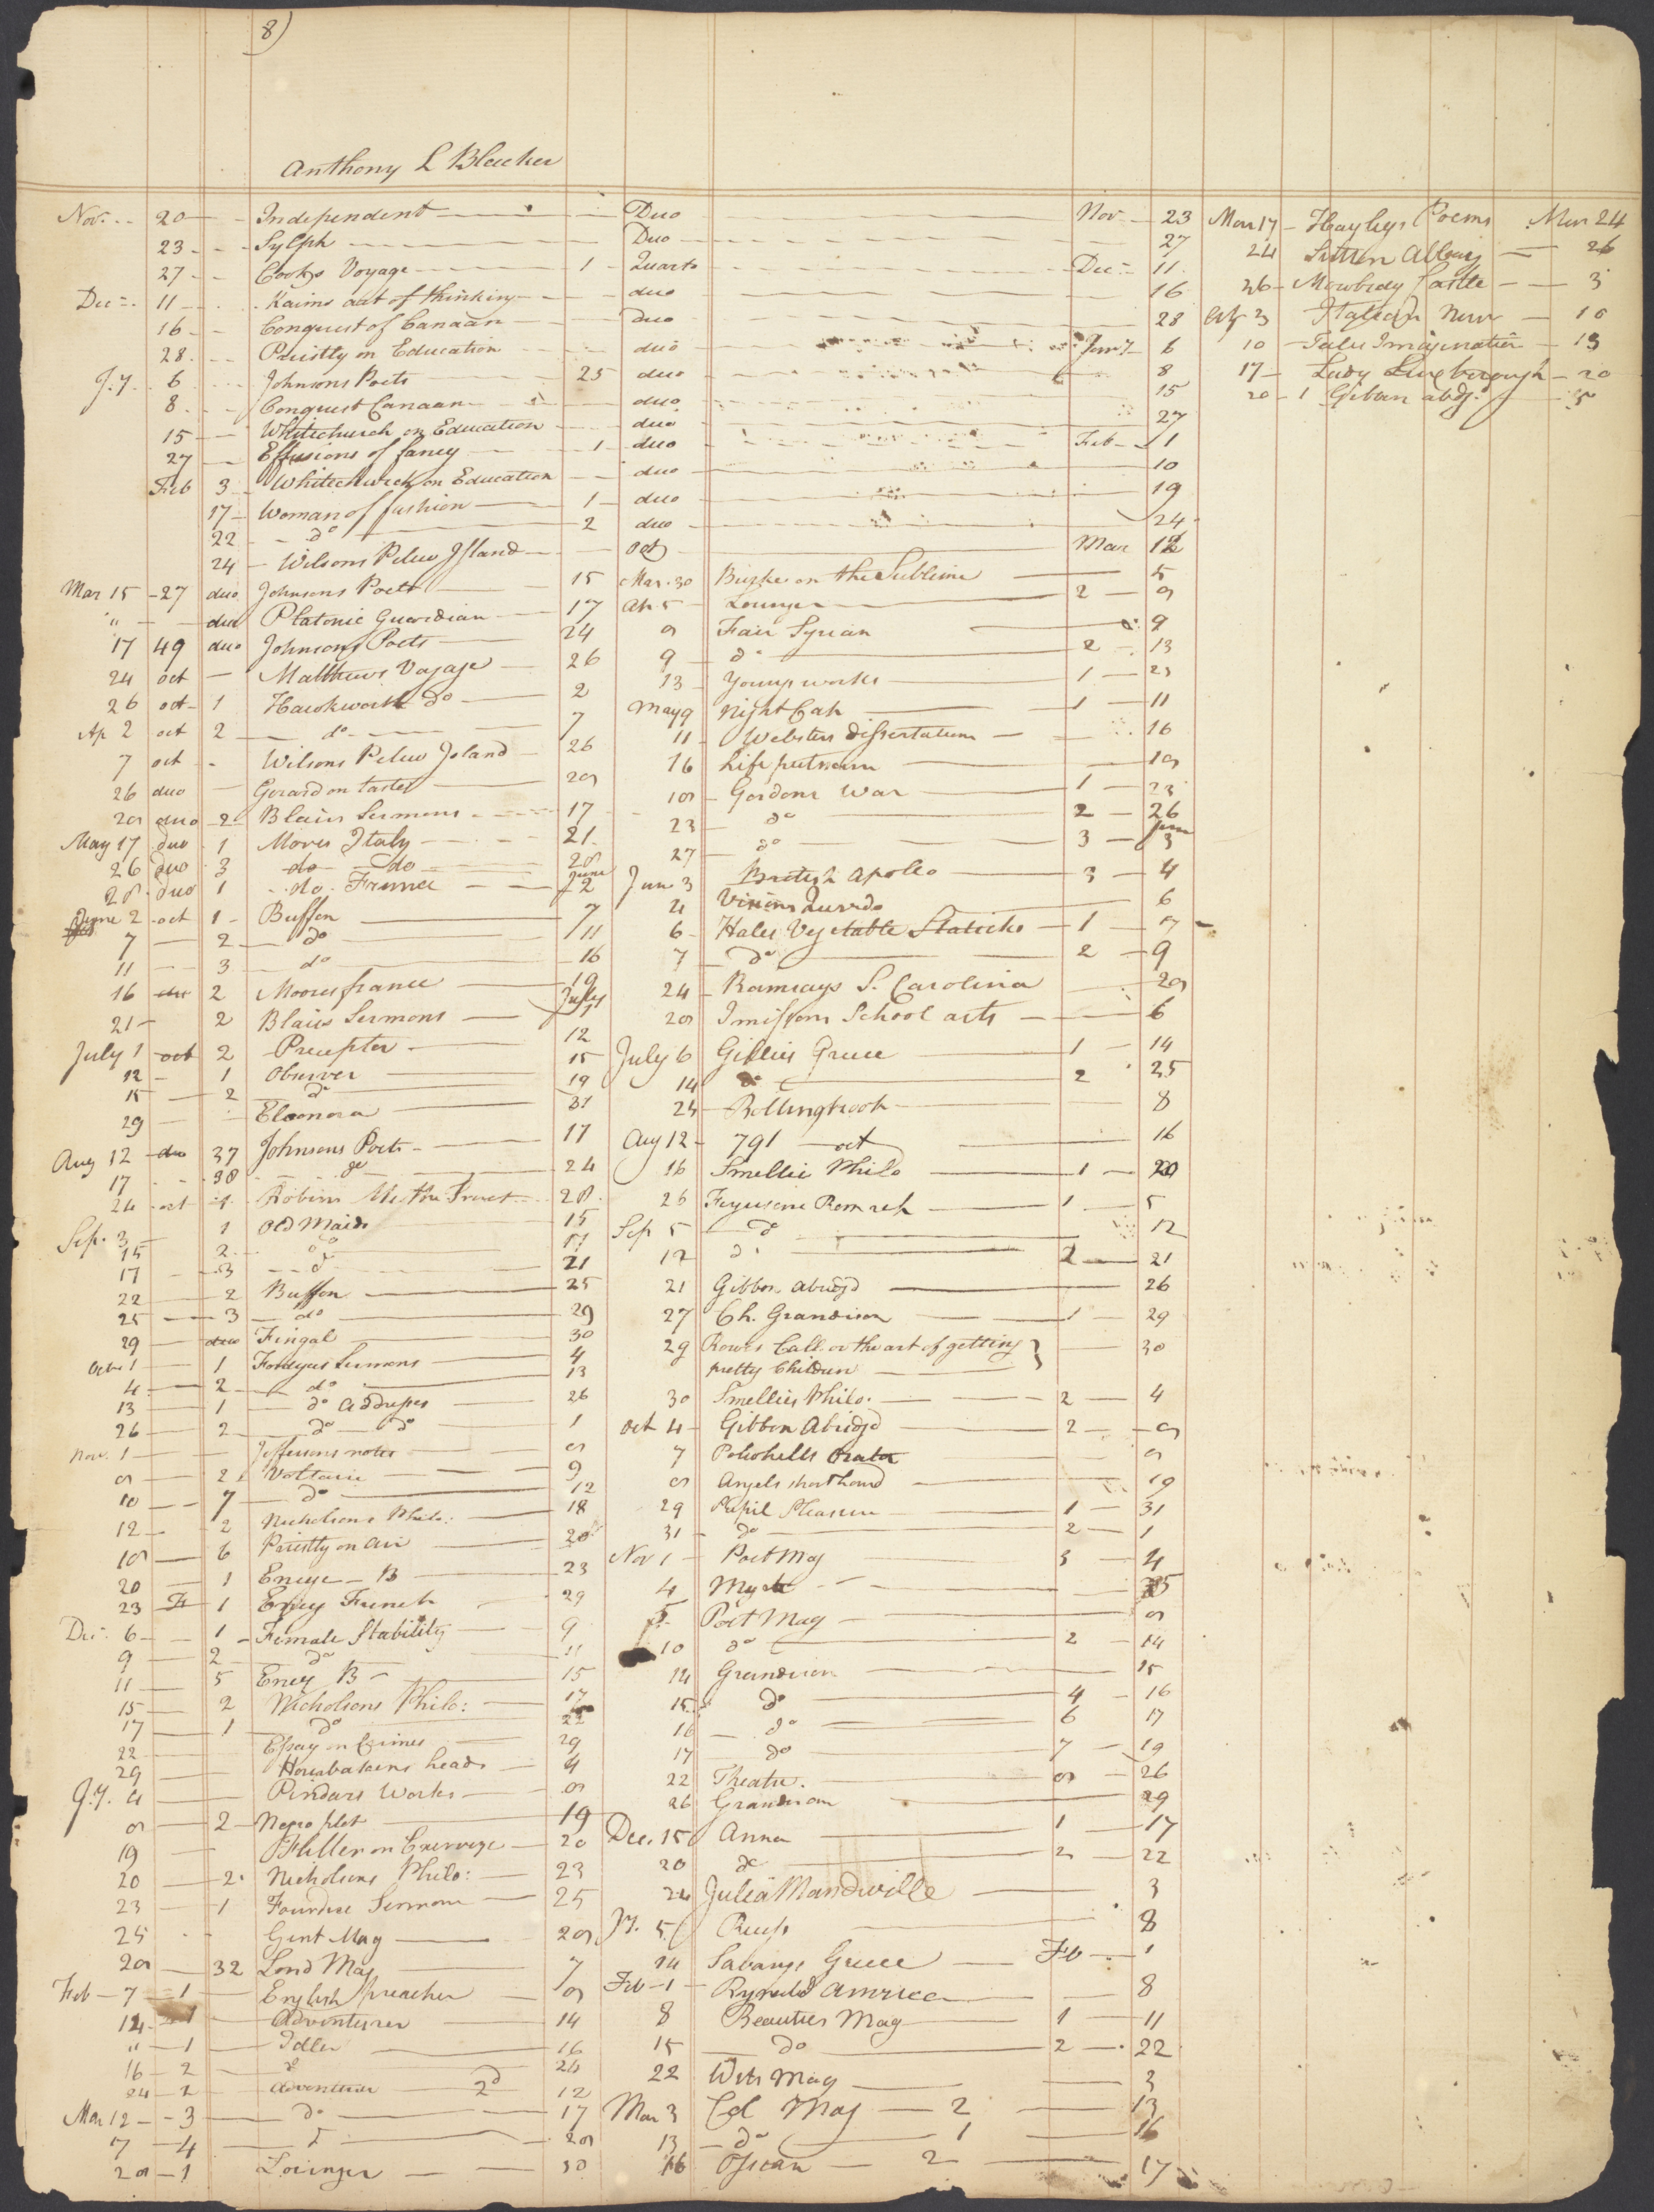 8)
Anthony L Bleecker
Nov. 20 Independent Duo Nov 23
23 Sylph Duo 27
27 Cooks Voyage 1 Quarto Dec 11
Dec 11 Kaims art of thinking duo 16
16 Conquest of Canaan Duo 28
28 Priestly on Education duo Jany 6
J.y. 6 Johnsons Poets 25 duo 8
8 Conquest Canaan duo 15
15 Whitechurch on Education duo 27
27 Effusions of fancy 1 duo Feb 1
Feb 3 Whitechurch on Education duo 10
17 Woman of fashion 1 duo 19
22 do 2 duo 24
24 Wilsons Pelew Island Oct Mar 12
Mar 15 27 duo Johnsons Poets 15
" duo Platonic Guardian 17
17 49 duo Johnsons Poets 24
24 oct Matthews Voyage 26
26 oct 1 Hawkworth do 2
Ap 2 oct 2 do 7
7 oct Wilsons Pelew Island 26
26 duo Gerard on taste 28
28 duo 2 Blairs Sermons 17
May 17 duo 1 Mores Italy 21
26 duo 3 do do 28
28 duo 1 do France June 2
June 2 oct 1 Buffon 7
7 2 do 11
11 3 do 16
16 2 Moores france 19
21 2 Blairs Sermons July 1
July 1 oct 2 Preceptor 12
12 1 Observer 15
15 2 do 19
29 Eleonora 31
Aug 12 duo 37 Johnsons Poets 17
17 38 do 24
24 oct 1 Robins 28
Sep. 3 1 Old Maids 15
15 2 do 17
17 3 do 21
22 2 Buffon 25
25 3 do 29
29 duo Fingal 30
Octr 1 1 Fordyces Sermons 4
4 2 do 13
13 1 do Addresses 26
26 2 do do 1
Nov. 1 Jeffersons notes 8
8 2 Voltaire 9
10 7 do 12
12 2 Nicholsons Philo: 18
18 6 Priestly on air 20
20 1 Encyc B 23
23 F 1 Encyc French 29
Dec. 6 1 Female Stability 9
9 2 do 11
11 5 Ency B 15
15 2 Nicholsons Philo: 17
17 1 do 22
22 Essay on Crimes 29
29 heads 4
J.y. 4 Pindars Works 8
8 2 Negro plot 19
19 Fuller on Exercise 20
20 2 Nicholsons Philo: 23
23 1 Fourdice Sermons 25
25 Gent Mag 28
28 32 Lond Mag 7
Feb 7 1 English preacher 8
14 1 Adventurer 14
" 1 Idler 16
16 2 do 24
24 2 Adventurer 2d 12
Mar 12 3 do 17
7 4 do 28
28 1 Lounger 30
Mar. 30 Burke on the Sublime 5
Ap 5 Lounger 2 9
8 Fair Syrian 9
9 do 2 13
13 Youngs works 1 23
May 9 Night Cap 1 11
11 Websters Dissertations 16
16 Life putnam 18
18 Gordons War 1 23
23 do 2 26
27 do 3 June 3
June 3 British Apollo 3 4
4 Visions Quevedo 6
6 Hales Vegetable Staticks 1 7
7 do 2 9
24 Ramsays S. Carolina 28
28 Imissons School arts 6
July 6 Gillies Greece 1 14
14 do 2 25
24 Bollingbrook 8
Aug 12 791 oct 16
16 Smellie Philo 1 20
26 Fergusons Rom reh 1 5
Sep 5 do 12
12 do 2 21
21 Gibbon abridgd 26
27 Ch. Grandison 1 29
29 Rowes Call. or the art of getting
pretty Children 30
30 Smellies Philo. 2 4
Oct 4 Gibbon Abridgd 2 8
7 Orator 8
8 Angels shorthand 19
29 Pupil Pleasure 1 31
31 do 2 1
Nov 1 Poet Mag 3 4
4 5
5 Poet Mag 8
10 do 2 14
14 Grandison 15
15 do 4 16
16 do 6 17
17 do 7 19
22 Theatre. 8 26
26 Grandison 29
Dec. 15 Anna 1 17
20 do 2 22
24 Julia Mandwille 3
J.y. 5 8
14 Greece Feb 1
Feb 1 America 8
8 Beauties Mag 1 11
15 do 2 22
22 Wits Mag 3
Mar 3 Col Mag 2 13
13 do 1 16
16 Ossian 2 17
Mar 17 Hayleys Poems Mar 24
24 Sutton Abbey 26
26 Mowbray Castle 3
Ap 3 Italian Nun 10
10 Tales Imagination 13
17 Lady Luxborough 20
20 1 Gibbon abdg. 5